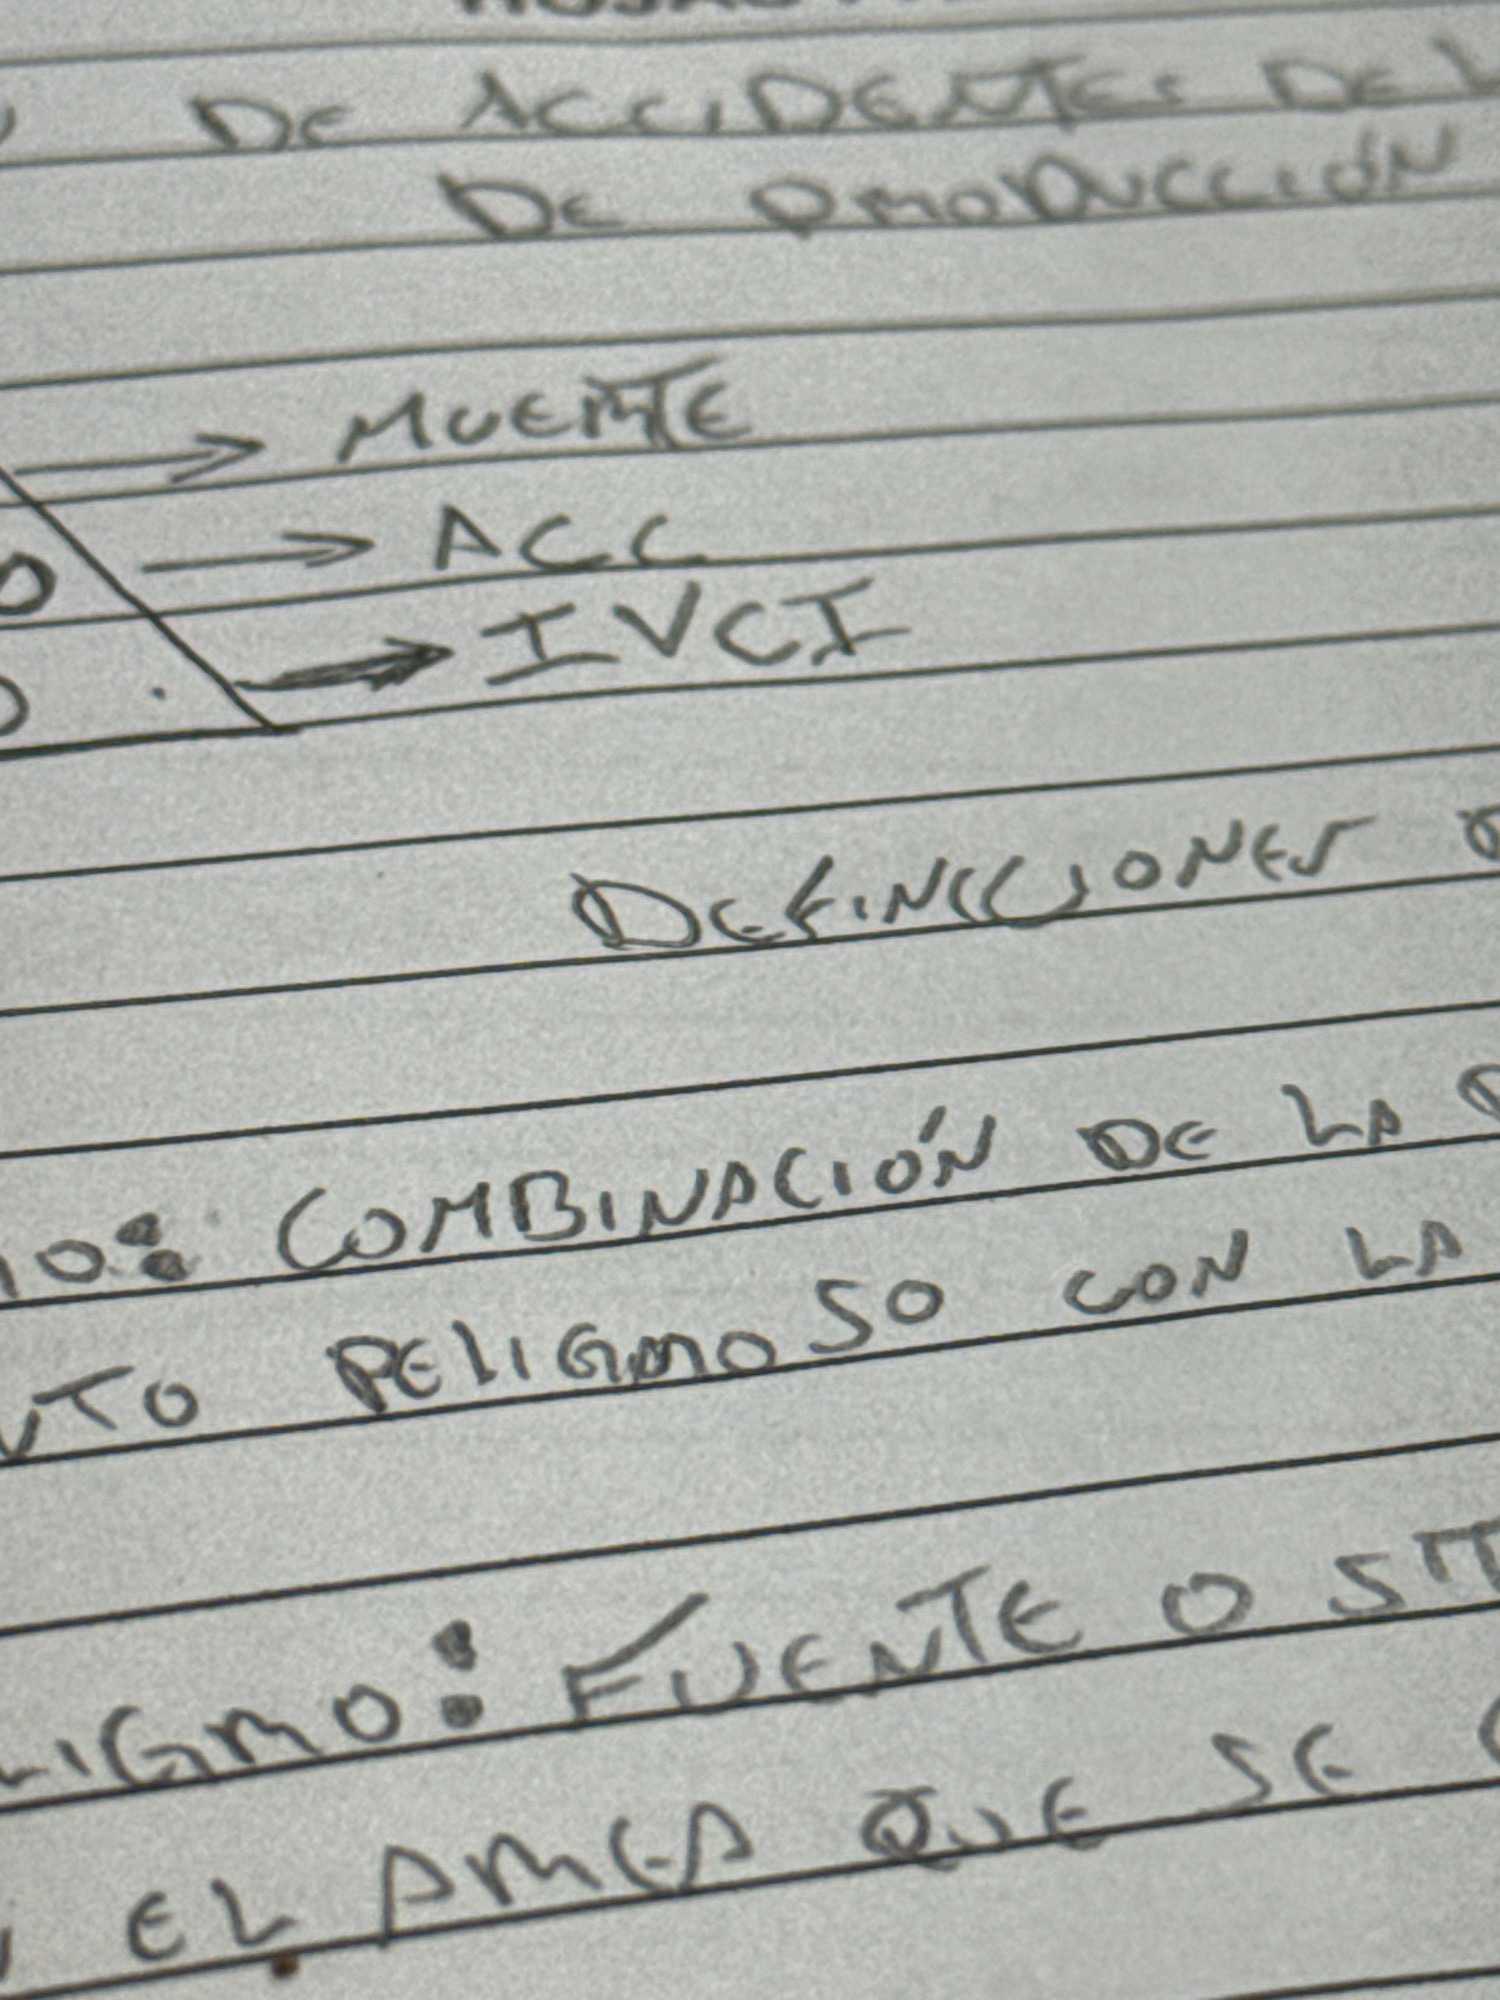 DE ACCIDENTES DE L
DE PRODUCCIÓN
MUERTE
O ACC
IVCI
DEFINICIONES
IO: COMBINACIÓN DE LA
NTO PELIGROSO CON LA
LIGRO: FUENTE O SIT
EL AREA QUE SE